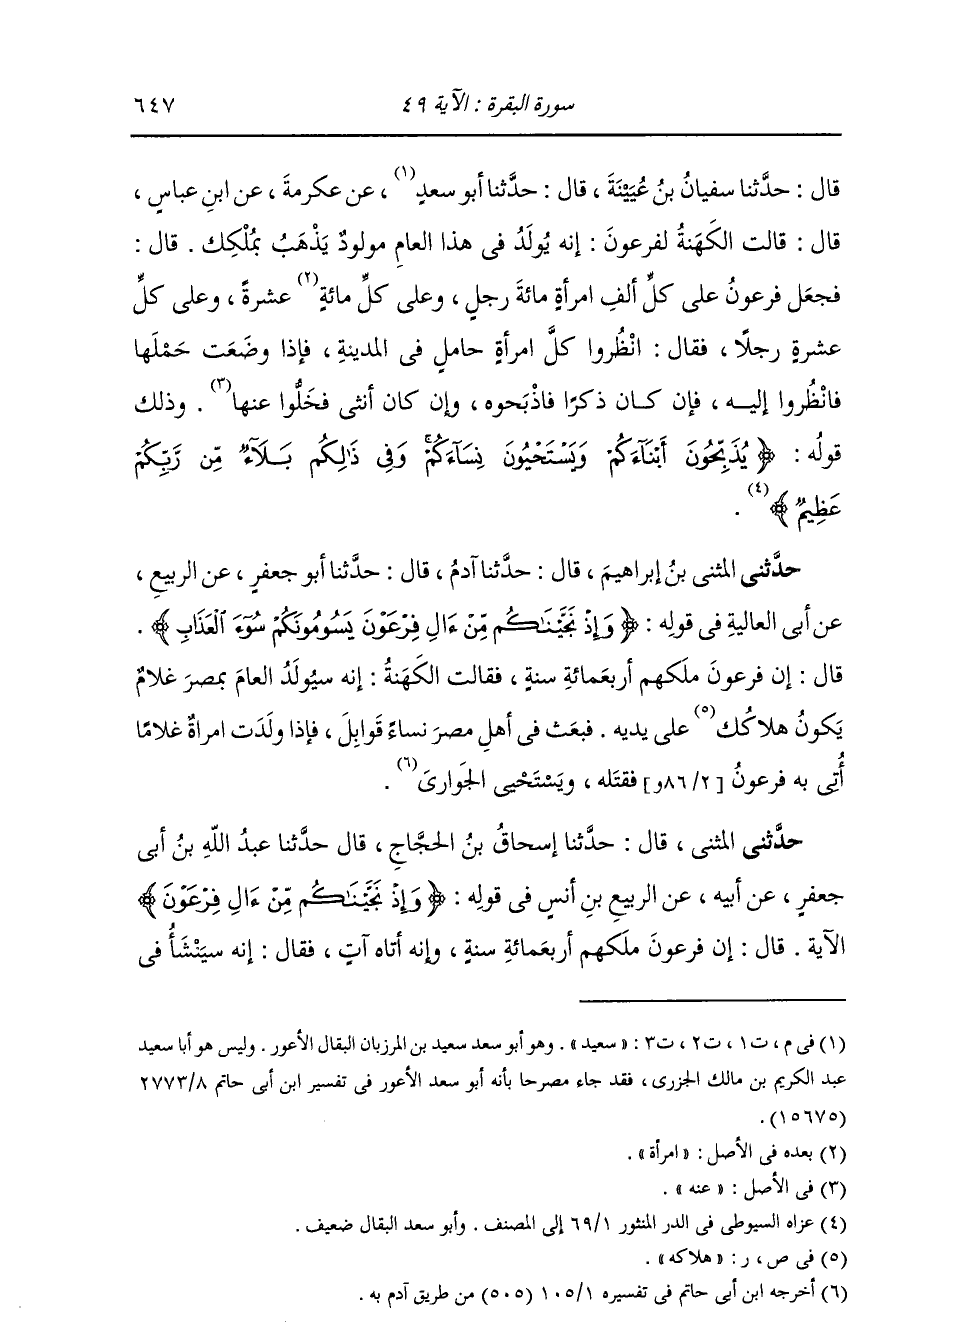 سورة البقرة : الآية ٤٩ ٦٤٧
قال : حدَّثنا سفيانُ بنُ عُيَيْنَةَ ، قال : حدَّثنا أبو سعدٍ(١) ، عن عكرمةَ ، عن ابنِ عباسٍ ،
قال : قالت الكَهَنةُ لفرعونَ : إنه يُولَدُ فى هذا العامِ مولودٌ يَذْهَبُ بمُلْكِك . قال :
فجعَل فرعونُ على كلِّ ألفِ امرأةٍ مائةَ رجلٍ ، وعلى كلِّ مائةٍ(٢) عشرةً ، وعلى كلِّ
عشرةٍ رجلًا ، فقال : انْظُروا كلَّ امرأةٍ حاملٍ فى المدينةِ ، فإذا وضَعَت حَمْلَها
فانْظُروا إليه ، فإن كان ذكرًا فاذْبَحوه ، وإن كان أنثى فخَلُّوا عنها(٣) . وذلك
قولُه : ﴿ يُذَبِّحُونَ أَبْنَآءَكُمْ وَيَسْتَحْيُونَ نِسَآءَكُمْ ۚ وَفِى ذَٰلِكُم بَلَآءٌ مِّن رَّبِّكُمْ
عَظِيمٌ ﴾(٤) .
حدَّثنى المثنى بنُ إبراهيمَ ، قال : حدَّثنا آدمُ ، قال : حدَّثنا أبو جعفرٍ ، عن الربيعِ ،
عن أبى العاليةِ فى قولِه : ﴿ وَإِذْ نَجَّيْنَٰكُم مِّنْ ءَالِ فِرْعَوْنَ يَسُومُونَكُمْ سُوٓءَ ٱلْعَذَابِ ﴾ .
قال : إن فرعونَ ملَكهم أربعَمائةِ سنةٍ ، فقالت الكَهَنةُ : إنه سيُولَدُ العامَ بمصرَ غلامٌ
يَكونُ هلاكُك(٥) على يديه . فبعَث فى أهلِ مصرَ نساءً قَوابِلَ ، فإذا ولَدَت امرأةٌ غلامًا
أُتِى به فرعونُ [٨٦/٢و] فقتَله ، ويَسْتَحْيى الجَوارىَ(٦) .
حدَّثنى المثنى ، قال : حدَّثنا إسحاقُ بنُ الحجَّاجِ ، قال حدَّثنا عبدُ اللَّهِ بنُ أبى
جعفرٍ ، عن أبيه ، عن الربيعِ بنِ أنسٍ فى قولِه : ﴿ وَإِذْ نَجَّيْنَٰكُم مِّنْ ءَالِ فِرْعَوْنَ ﴾
الآية . قال : إن فرعونَ ملَكهم أربعَمائةِ سنةٍ ، وإنه أتاه آتٍ ، فقال : إنه سيَنْشَأُ فى
(١) فى م ، ت١ ، ت٢ ، ت٣ : « سعيد » . وهو أبو سعد سعيد بن المرزبان البقال الأعور . وليس هو أبا سعيد
عبد الكريم بن مالك الجزرى ، فقد جاء مصرحا بأنه أبو سعد الأعور فى تفسير ابن أبى حاتم ٢٧٧٣/٨
(١٥٦٧٥) .
(٢) بعده فى الأصل : « امرأة » .
(٣) فى الأصل : « عنه » .
(٤) عزاه السيوطى فى الدر المنثور ٦٩/١ إلى المصنف . وأبو سعد البقال ضعيف .
(٥) فى ص ، ر : « هلاكه » .
(٦) أخرجه ابن أبى حاتم فى تفسيره ١٠٥/١ (٥٠٥) من طريق آدم به .